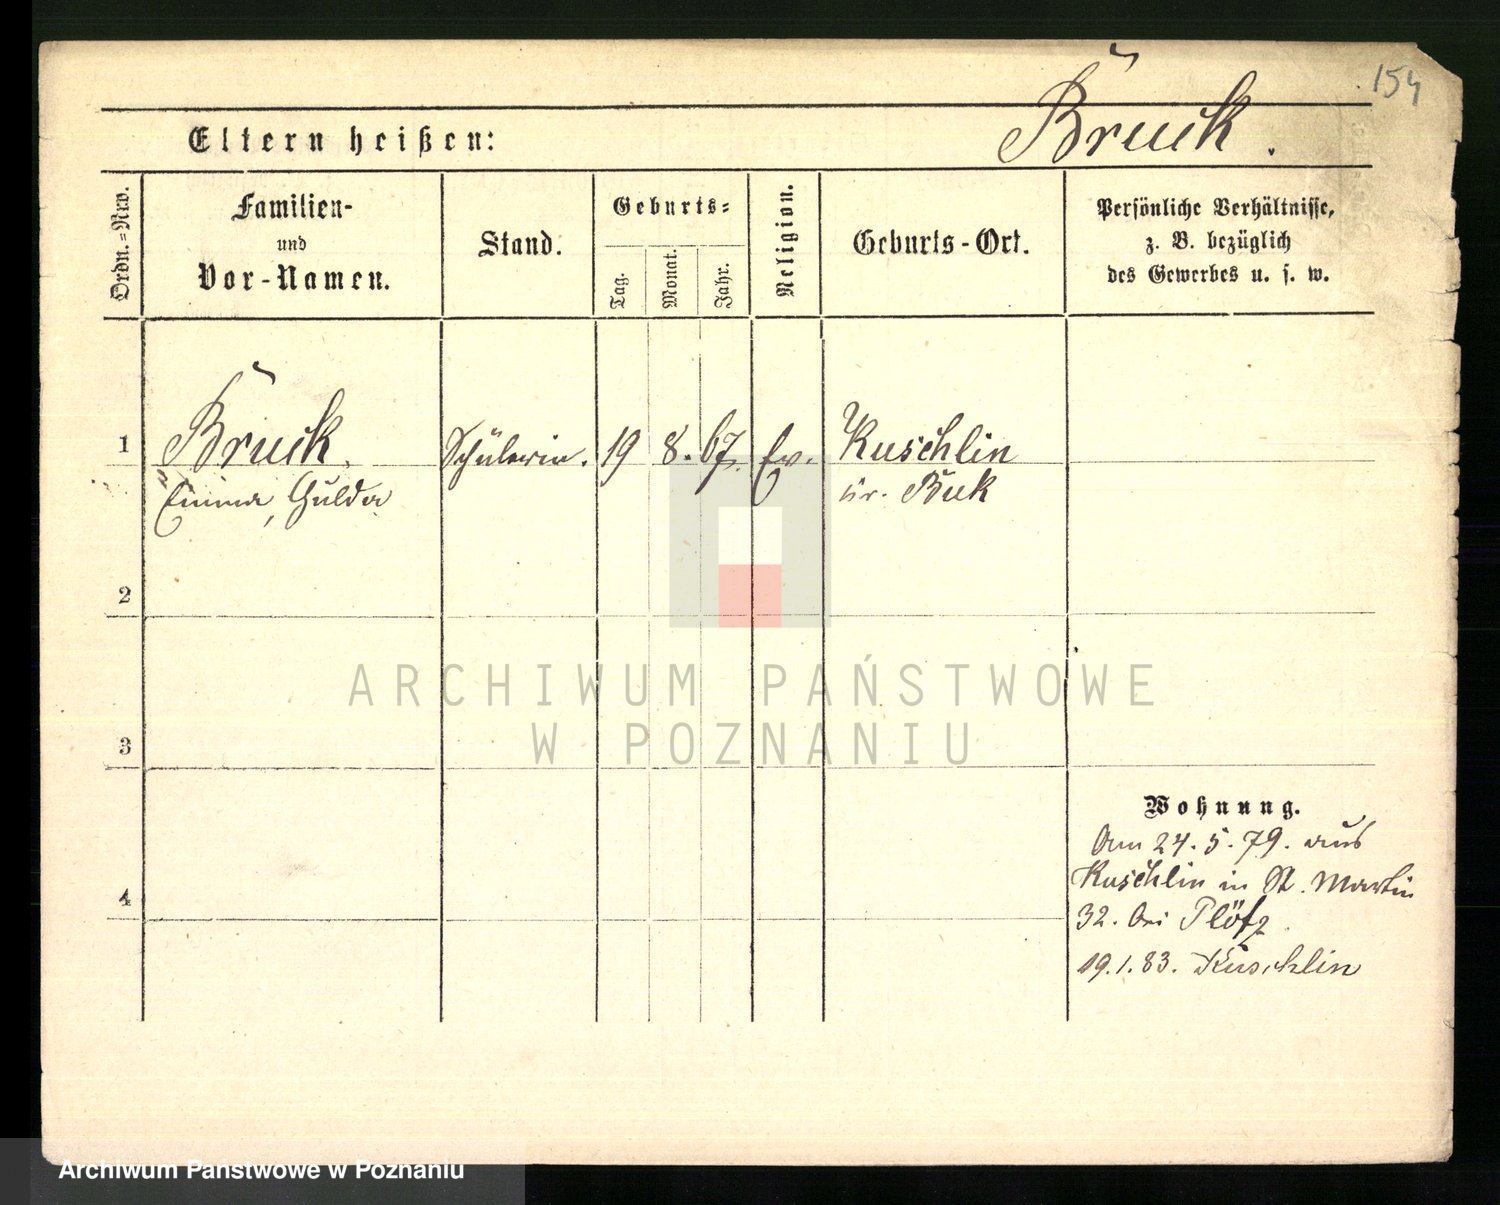 154
Bruck.
Eltern heißen:
Ordn.=Nrw.
Familien-
und
Vor-Namen.
Stand.
Geburts=
Tag.
Monat.
Jahr.
Religion.
Geburts-Ort.
Persönliche Verhältnisse,
z. B. bezüglich
des Gewerbes u. s. w.
1 Bruck. Schülerin. 19 8. 67. Ev. Kuschlin
Emma, Hulda Kr. Buk
2
3
4
Wohnung.
Am 24. 5. 79. aus
Kuschlin in St. Martin
32. bei Plötz
19.1.83. Kuschlin
ARCHIWUM PAŃSTWOWE
W POZNANIU
Archiwum Państwowe w Poznaniu